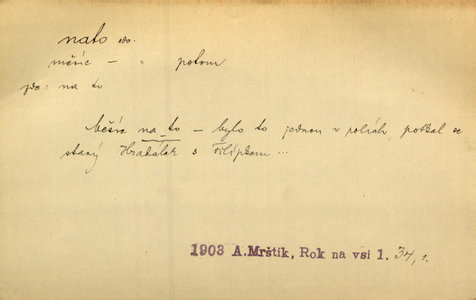 nato adv.
měsíc – " potom
jde: na to
Měsíc na to – bylo to jednou v polích, potkal se
starý Hrabálek s Filipkem...
1903 A. Mrštik, Rok na vsi 1. 34, 1.